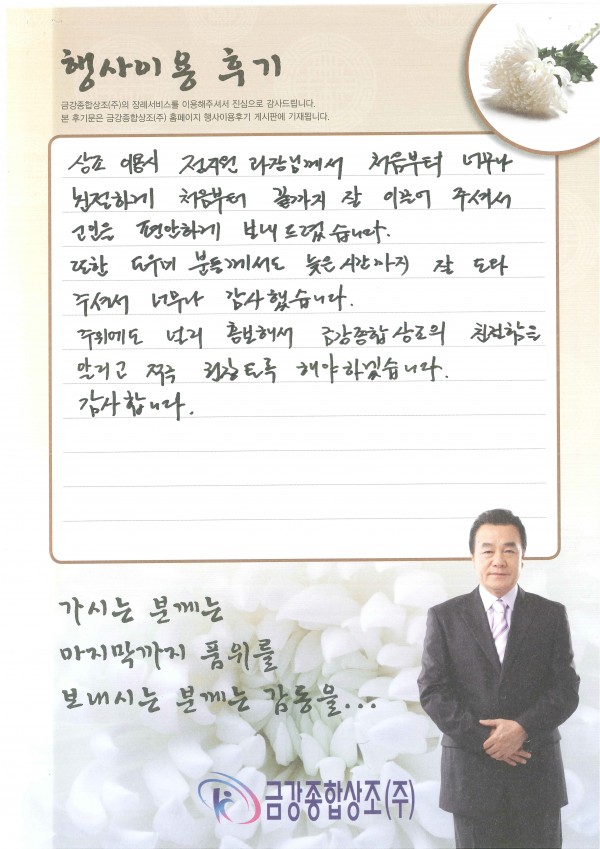 행사이용 후기
금강종합상조(주)의 장례서비스를 이용해주셔서 진심으로 감사드립니다.
본 후기문은 금강종합상조(주) 홈페이지 행사이용후기 게시판에 기재됩니다.
상조 이용시 정지원 과장님께서 처음부터 너무나
친절하게 처음부터 끝까지 잘 이끌어 주셔서
고인을 편안하게 보내드렸습니다.
또한 도우미 분들께서도 늦은시간까지 잘 도와
주셔서 너무나 감사했습니다.
주위에도 널리 홍보해서 금강종합상조의 친절함을
알리고 적극 권장토록 해야하겠습니다.
감사합니다.
가시는 분께는
마지막까지 품위를
보내시는 분께는 감동을...
금강종합상조(주)